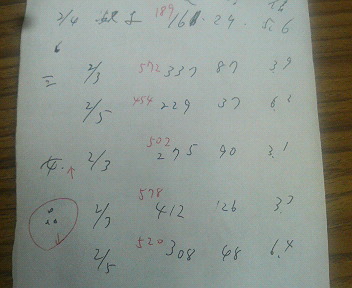 2/4 189 161 . 24 . 5.6
6
二 2/3 572 337 87 3.9
2/5 454 229 37 6.2
4. 2/3 502 275 90 3.1
2/3 578 412 126 3.7
2/5 520 308 48 6.4